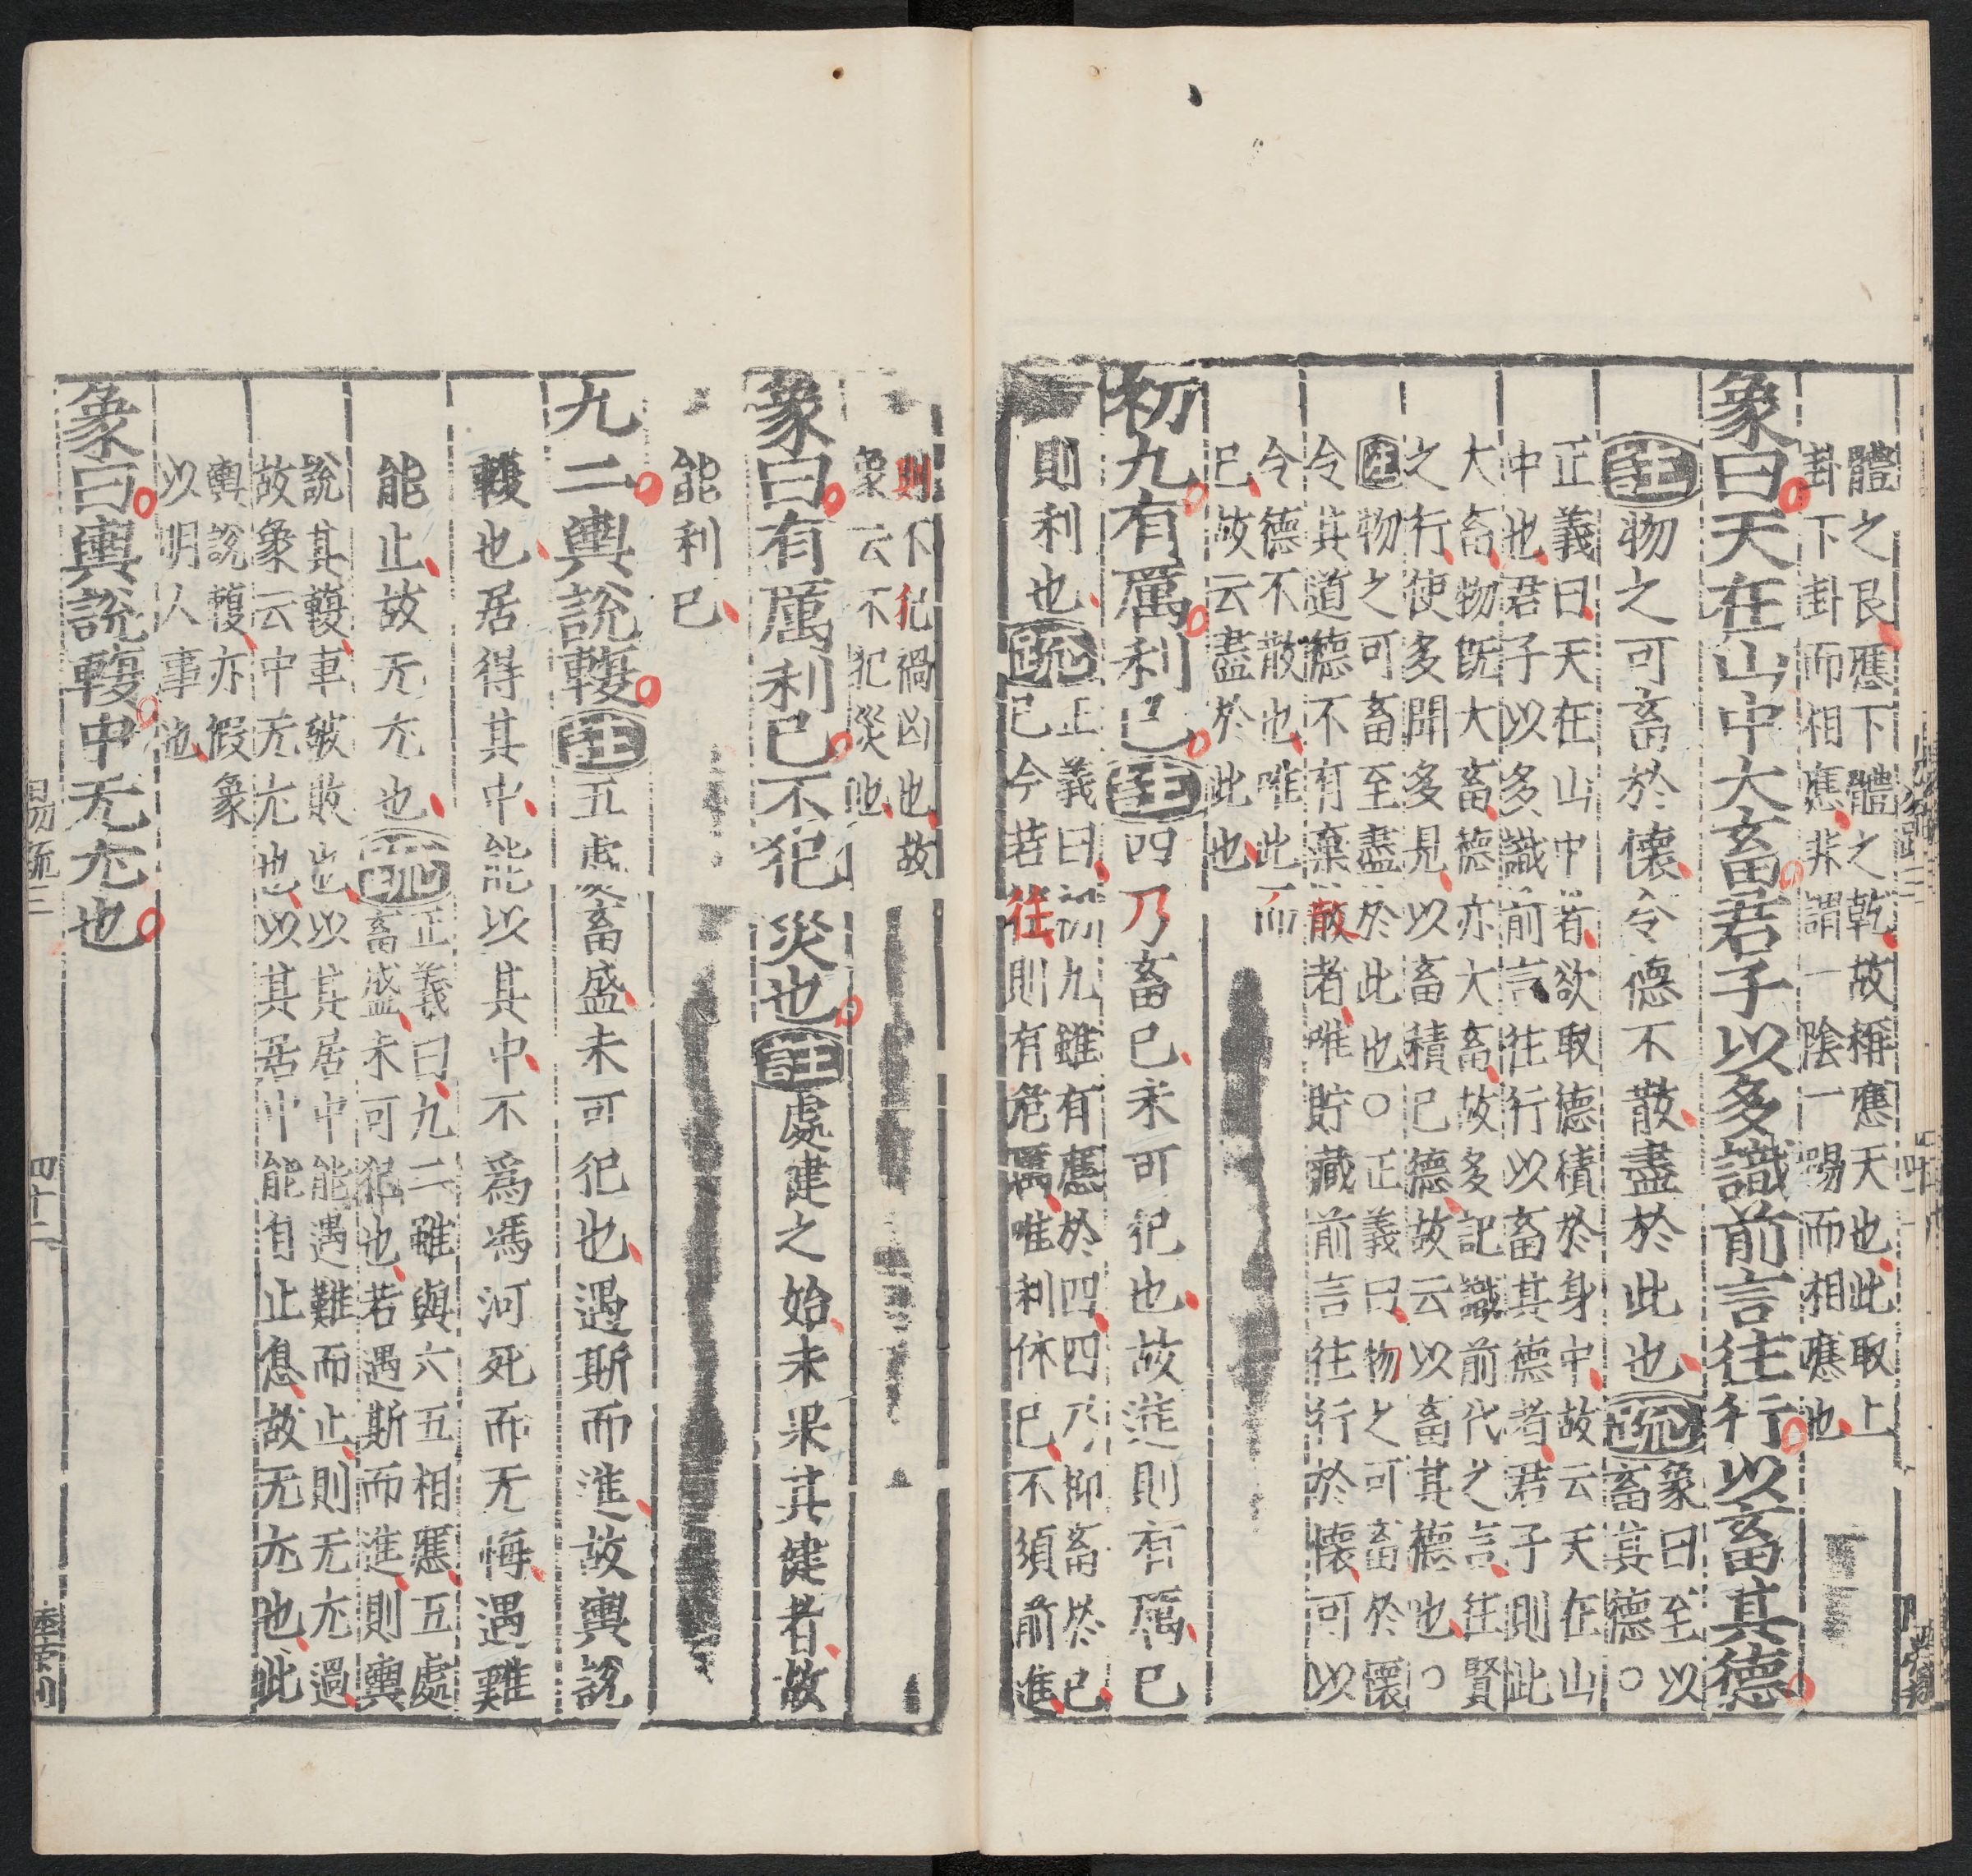 體之艮應下體之乾故稱應天也此取上
卦下卦而相應非謂一陰一陽而相應也
象曰天在山中大畜君子以多識前言往行以畜其德
註物之可畜於懷令德不散盡於此也疏象曰至以
畜其德○
正義曰天在山中者欲取德積於身中故云天在山
中也君子以多識前言往行以畜其德者君子則此
大畜物旣大畜德亦大畜故多記識前代之言往賢
之行使多聞多見以畜積已德故云以畜其德也○
註物之可畜至盡於此也○正義曰物之可畜於懷
令其道德不有棄散者唯貯藏前言往行於懷可以
令德不散也唯此而
已故云盡於此也
初九有厲利已註四乃畜已未可犯也故進則有厲已
則利也疏正義曰初九雖有應於四四乃抑畜於已
已今若往則有危厲唯利休已不須前進
則不犯禍凶也故
象云不犯災也
象曰有厲利已不犯災也註處健之始未果其健者故
能利已
九二輿說輹註五處畜盛未可犯也遇斯而進故輿說
輹也居得其中能以其中不爲馮河死而无悔遇難
能止故无尤也疏正義曰九二雖與六五相應五處
畜盛未可犯也若遇斯而進則輿
說其輹車破敗也以其居中能遇難而止則无尤過
故象云中无尤也以其居中能自止息故无尤也此
輿說輹亦假象
以明人事也
象曰輿說輹中无尤也
易疏三
四十二